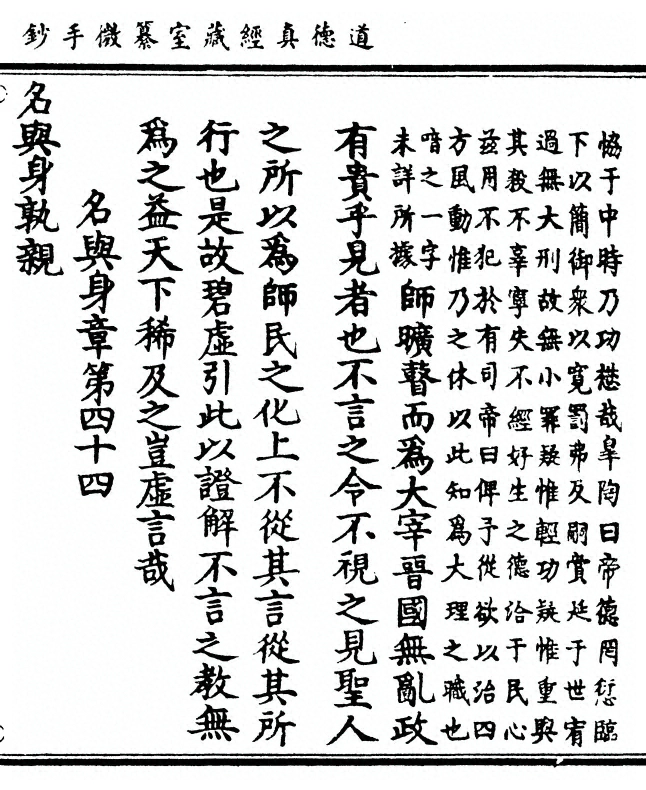 道德真經藏室纂微手鈔
恊于中時乃功懋哉皐陶曰帝德罔愆臨
下以簡御眾以寬罰弗及嗣賞延于世宥
過無大刑故無小罪疑惟輕功疑惟重與
其殺不辜寧失不經好生之德洽于民心
兹用不犯於有司帝曰俾予從欲以治四
方風動惟乃之休以此知爲大理之職也
喑之一字
未詳所據
師曠瞽而爲大宰晉國無亂政
有貴乎見者也不言之令不視之見聖人
之所以爲師民之化上不從其言從其所
行也是故碧虛引此以證解不言之教無
爲之益天下稀及之豈虛言哉
名與身章第四十四
名與身孰親